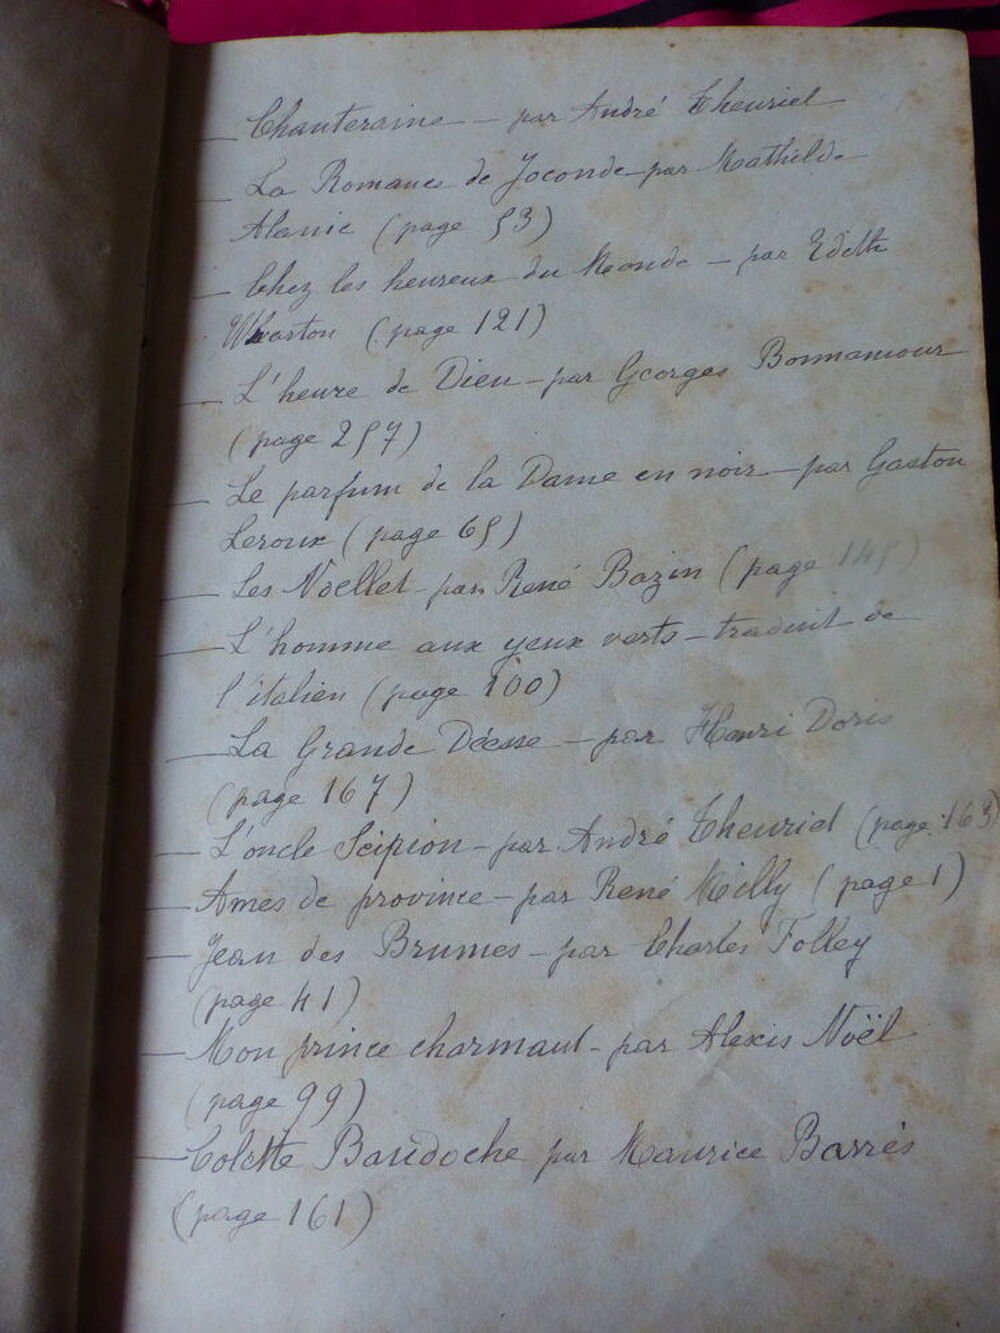 — Chanteraine — par André Theuriet
— La Romance de Joconde par Mathilde
Alanic (page 53)
— Chez les heureux du Monde — par Edith
Wharton (page 121)
— L'heure de Dieu — par Georges Bonnamour
(page 257)
— Le parfum de la Dame en noir — par Gaston
Leroux (page 65)
— Les Noellet — par René Bazin (page 145)
— L'homme aux yeux verts — traduit de
l'italien (page 100)
— La Grande Déesse — par Henri Doris
(page 167)
— L'oncle Scipion — par André Theuriet (page 163)
— Ames de province — par René Milly (page 1)
— Jean des Brumes — par Charles Folley
(page 41)
— Mon prince charmant — par Alexis Noël
(page 99)
— Colette Baudoche par Maurice Barrès
(page 161)